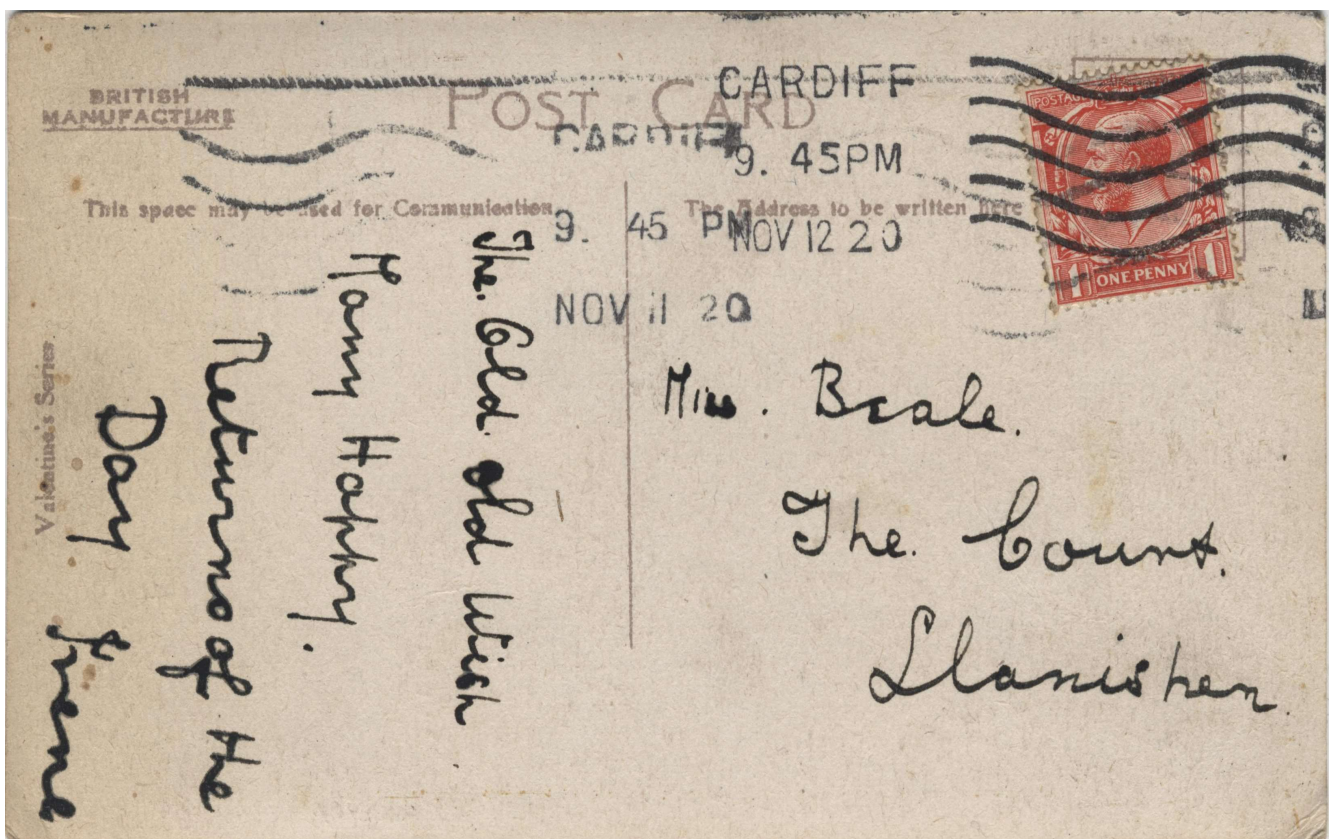 BRITISH
MANUFACTURE
POST CARD
CARDIFF
9. 45PM
NOV 12 20
CARDIFF
9. 45 PM
NOV 11 20
This space may be used for Communication
The Address to be written here
POSTAGE
ONE PENNY
1 1
Valentine's Series
The. Old. old Wish
Many Happy.
Returns of the
Day Irene
Miss. Beale.
The. Court.
Llanishen